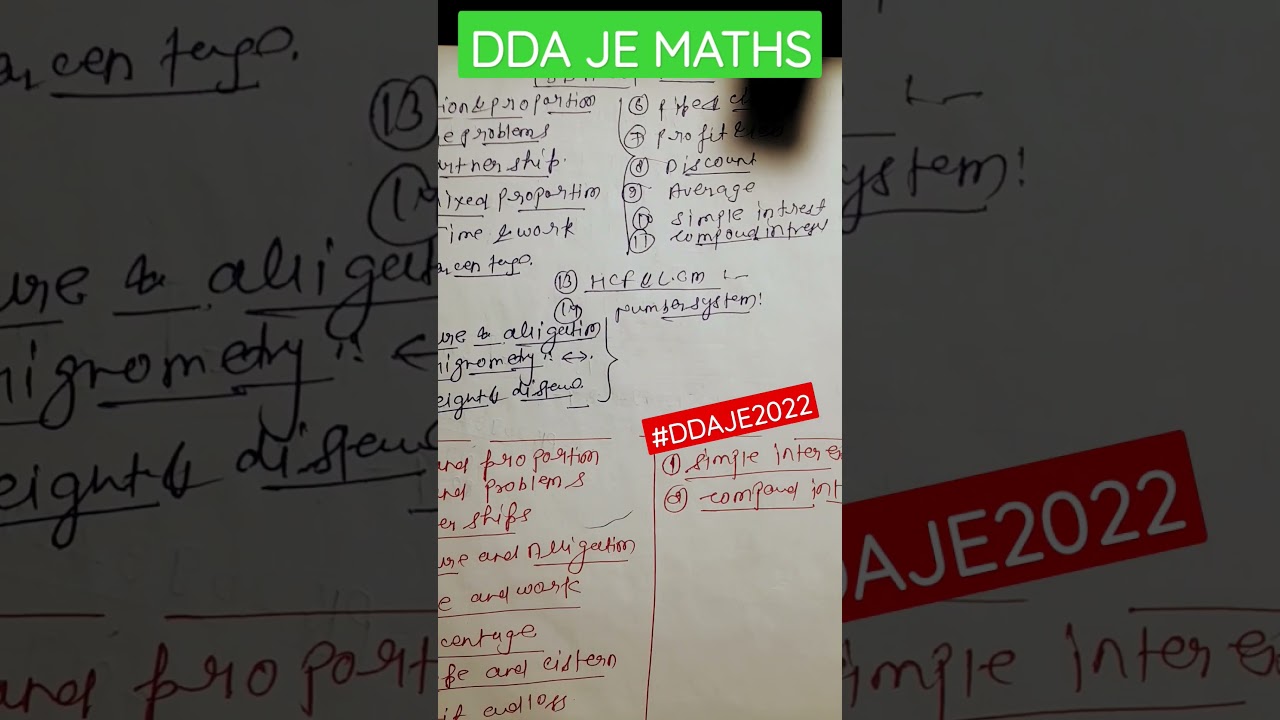 DDA JE MATHS
tion & proportion
ge problems
artnership.
mixed proportion
Time & work
ercentage.
⑥ pipe &
⑦ profit &
⑧ Discount
⑨ Average
⑩ simple intrest
⑪ compoud intrest
⑬ HCF & L.C.M
⑭ number system!
ure & alligation
nigrometry :
eight &
#DDAJE2022
and proportion
and problems
er ships
ure and Alligation
e and work
centage
pe and cistern
it and loss
① simple inter
② compoud int